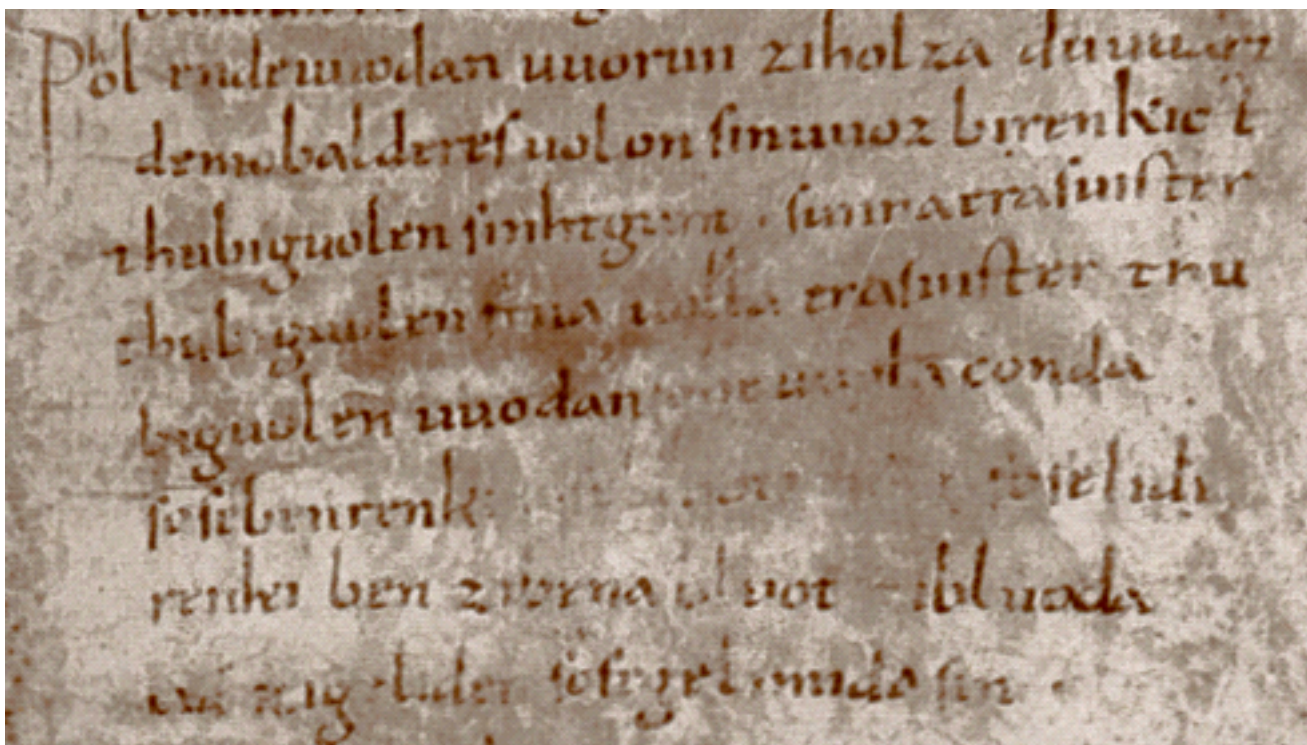 Phol endeuuodan uuorun ziholza du uuart
demobalderesuolon sinuuoz birenkict
thubiguolen sinhtgunt . sunnaerasuister
thubiguolen friia uolla erasuister thu
biguolen uuodan sohe uuolaconda
sosebenrenki sose lidi
renki ben zibena bluot zibluoda
lid zigeliden sosegelimida sin